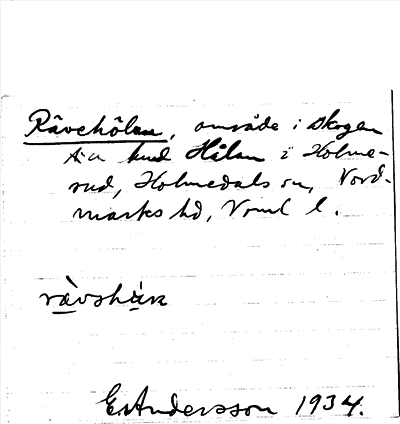 Rävehôlan, område i skogen
hemd Hålan i Holme-
rud, Holmedals sn, Nord-
marks hd, Vrml l.
EAndersson 1934.